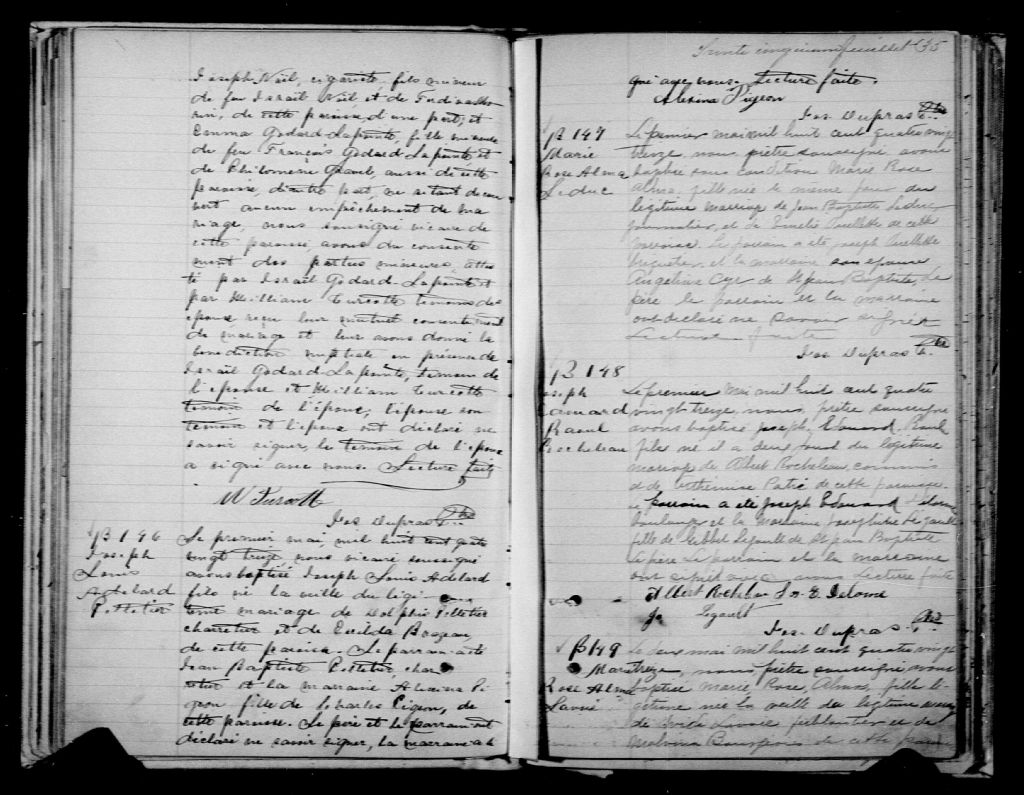 Joseph Noël, cigariste, fils mineur
de feu Israël Noël, et de
de cette paroisse, d'une part, et
Emma Godard Lapointe, fille mineure
de feu François Godard Lapointe et
de Philomène aussi de cette
paroisse, d'autre part, ne s'étant décou
vert aucun empêchement de ma
riage, nous soussigné vicaire de
cette paroisse avons du consente
ment des parties mineures, attes
té par Israël Godard Lapointe et
par William Turcotte témoins des
époux reçu leur mutuel consentement
de mariage et leur avons donné la
bénédiction nuptiale en présence de
Israël Godard Lapointe, témoin de
l'épouse et William Turcotte
témoin de l'époux, l'épouse son
témoin et l'époux ont déclaré ne
savoir signer, le témoin de l'époux
a signé avec nous. Lecture faite
W Turcott
Jos Dupras Ptre
B 146
Joseph
Louis
Adelard
Pelletier
Le premier mai mil huit cent quatre
vingt treize nous vicaire soussigné
avons baptisé Joseph Louis Adelard
fils né la veille du légi
time mariage de Dolphis Pelletier
charretier et de Exilda
de cette paroisse. Le parrain a été
Jean Baptiste Pelletier, char
retier et la marraine Alexina Pi
geon fille de Charles Pigeon, de
cette paroisse. Le père et le parrain ont
déclaré ne savoir signer, la marraine a
Trente cinquième feuillet 35
qué avec nous. Lecture faite.
Alexina Pigeon
Jos Dupras Ptre
B 147
Marie
Rose Alma
Leduc
Le premier mai mil huit cent quatre vingt
treize, nous prêtre soussigné avons
baptisé sous condition Marie Rose
Alma, fille née le même jour du
légitime mariage de Jean Baptiste Leduc
journalier, et de Emélie Ouellette de cette
paroisse. Le parrain a été Joseph Ouellette
et la marraine son épouse
Angélina Cyr de St Jean Baptiste, Le
père le parrain et la marraine
ont déclaré ne savoir signer
Lecture faite
Jos Dupras Ptre
B 148
Joseph
Edouard
Raoul
Rocheleau
Le premier Mai mil huit cent quatre
vingt treize, nous, prêtre soussigné
avons baptisé Joseph, Edouard, Raoul
fils né il a deux jours du légitime
mariage de Albert Rocheleau, commis
et de de cette paroisse
Le parrain a été Joseph Edouard Delorme
boulanger et la marraine Josephine Legault
fille de Legault de St Jean Baptiste
Le père Le parrain et la marraine
ont signé avec nous Lecture faite
Albert Rocheleau J. E Delorme
Jo Legault
Jos. Dupras Ptre
B 149
Marie
Rose Alma
Lavoie
Le deux mai mil huit cent quatre vingt
treize, nous, prêtre soussigné avons
baptisé Marie, Rose, Alma, fille lé
gitime née la veille du légitime mariage
de Lavoie, ferblantier et de
Malvina Bourgeois de cette paroisse